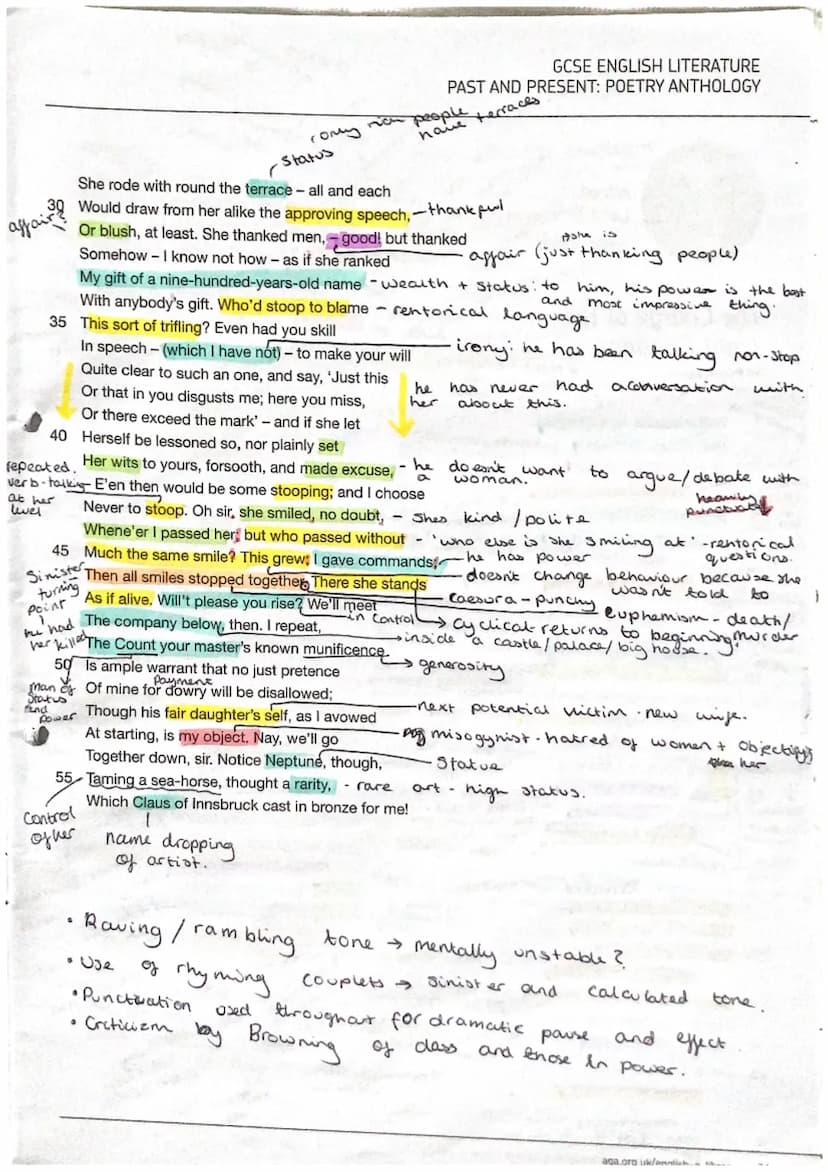 GCSE ENGLISH LITERATURE
PAST AND PRESENT: POETRY ANTHOLOGY
only rich people have terraces
status
She rode with round the terrace – all and each
30 Would draw from her alike the approving speech, – thankful
affair?
Or blush, at least. She thanked men, – good! but thanked
she is
affair (just thanking people)
Somehow – I know not how – as if she ranked
My gift of a nine-hundred-years-old name - wealth + status: to him, his power is the best
and most impressive thing.
With anybody's gift. Who'd stoop to blame – rentorical language
35 This sort of trifling? Even had you skill
In speech – (which I have not) – to make your will
irony: he has been talking non-stop
Quite clear to such an one, and say, 'Just this
Or that in you disgusts me; here you miss,
he has never had a conversation with
her about this.
Or there exceed the mark' – and if she let
40 Herself be lessoned so, nor plainly set
Her wits to yours, forsooth, and made excuse, - he doesn't want to argue/debate with
a woman.
repeated
verb - talking
at her
level
– E'en then would be some stooping; and I choose
Never to stoop. Oh sir, she smiled, no doubt, – shes kind / polite
Whene'er I passed her; but who passed without - 'who else is she smiling at' - rentorical
questions.
45 Much the same smile? This grew; I gave commands; – he has power
Then all smiles stopped together. There she stands
doesn't change behaviour because she
wasn't told to
Sinister
turning
point
he had
her killed
As if alive. Will't please you rise? We'll meet
caesura - punchy
euphemism - death/
murder
in control
cyclical returns to beginning
The company below, then. I repeat,
inside a castle/palace/big house.
The Count your master's known munificence
generosity
50 Is ample warrant that no just pretence
man of
status
and
power
payment
Of mine for dowry will be disallowed;
Though his fair daughter's self, as I avowed
next potential victim - new wife.
At starting, is my object. Nay, we'll go
misogynist - hatred of women +
her
Together down, sir. Notice Neptune, though,
Statue
55 Taming a sea-horse, thought a rarity, - rare art - high status.
Control
of her
Which Claus of Innsbruck cast in bronze for me!
name dropping
of artist.
• Raving / rambling tone → mentally unstable?
• Use of rhyming couplets → sinister and calculated tone.
• Punctuation used throughout for dramatic pause and effect
• Criticism by Browning of class and those in power.